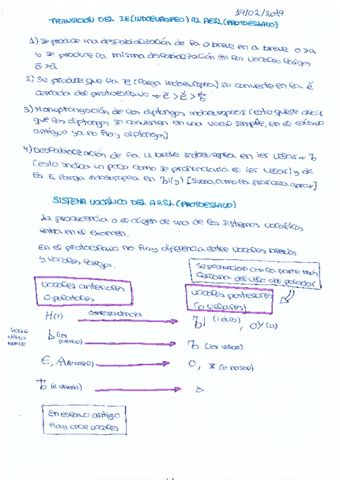 19/02/2019
TRANSICIÓN DEL IE (INDOEUROPEO) AL AESL (PROTOESLAVO)
1) Se produce una deslabialización de la o breve en a breve o > a
y se produce la misma deslabialización en las vocales largas
ō > ā.
2) Se produce que la ē (larga indoeuropea) se convierte en la ě
cerrada del protoeslavo → ē > ě > ѣ
3) Monoptongación de los diptongos indoeuropeos (esto quiere decir
que los diptongos se convierten en una vocal simple, en el eslavo
antiguo ya no hay diptongos)
4) Deslabialización de la u breve indoeuropea en ier velar → ъ
(esto indica un poco como se pronunciaría el ier velar) y de
la ū larga indoeuropea en ъI (y) [suena como la pronunciamos]
SISTEMA VOCÁLICO DEL AESL (PROTOESLAVO)
La procedencia o el origen de uno de los sistemas vocálicos
entra en el examen.
En el protoeslavo no hay diferencia entre vocales breves
y vocales largas.
Se pronuncian con la parte más
cercana del velo del paladar
vocales anteriores
o palatales
vocales posteriores
(o velares)
И (i)
correspondencia
ъI, oy (u)
ь (ier
palatal)
ъ (ier velar)
Є, Ѧ (e nasal)
O, Ѫ (o nasal)
ѣ (e abierta)
a
En eslavo antiguo
hay once vocales